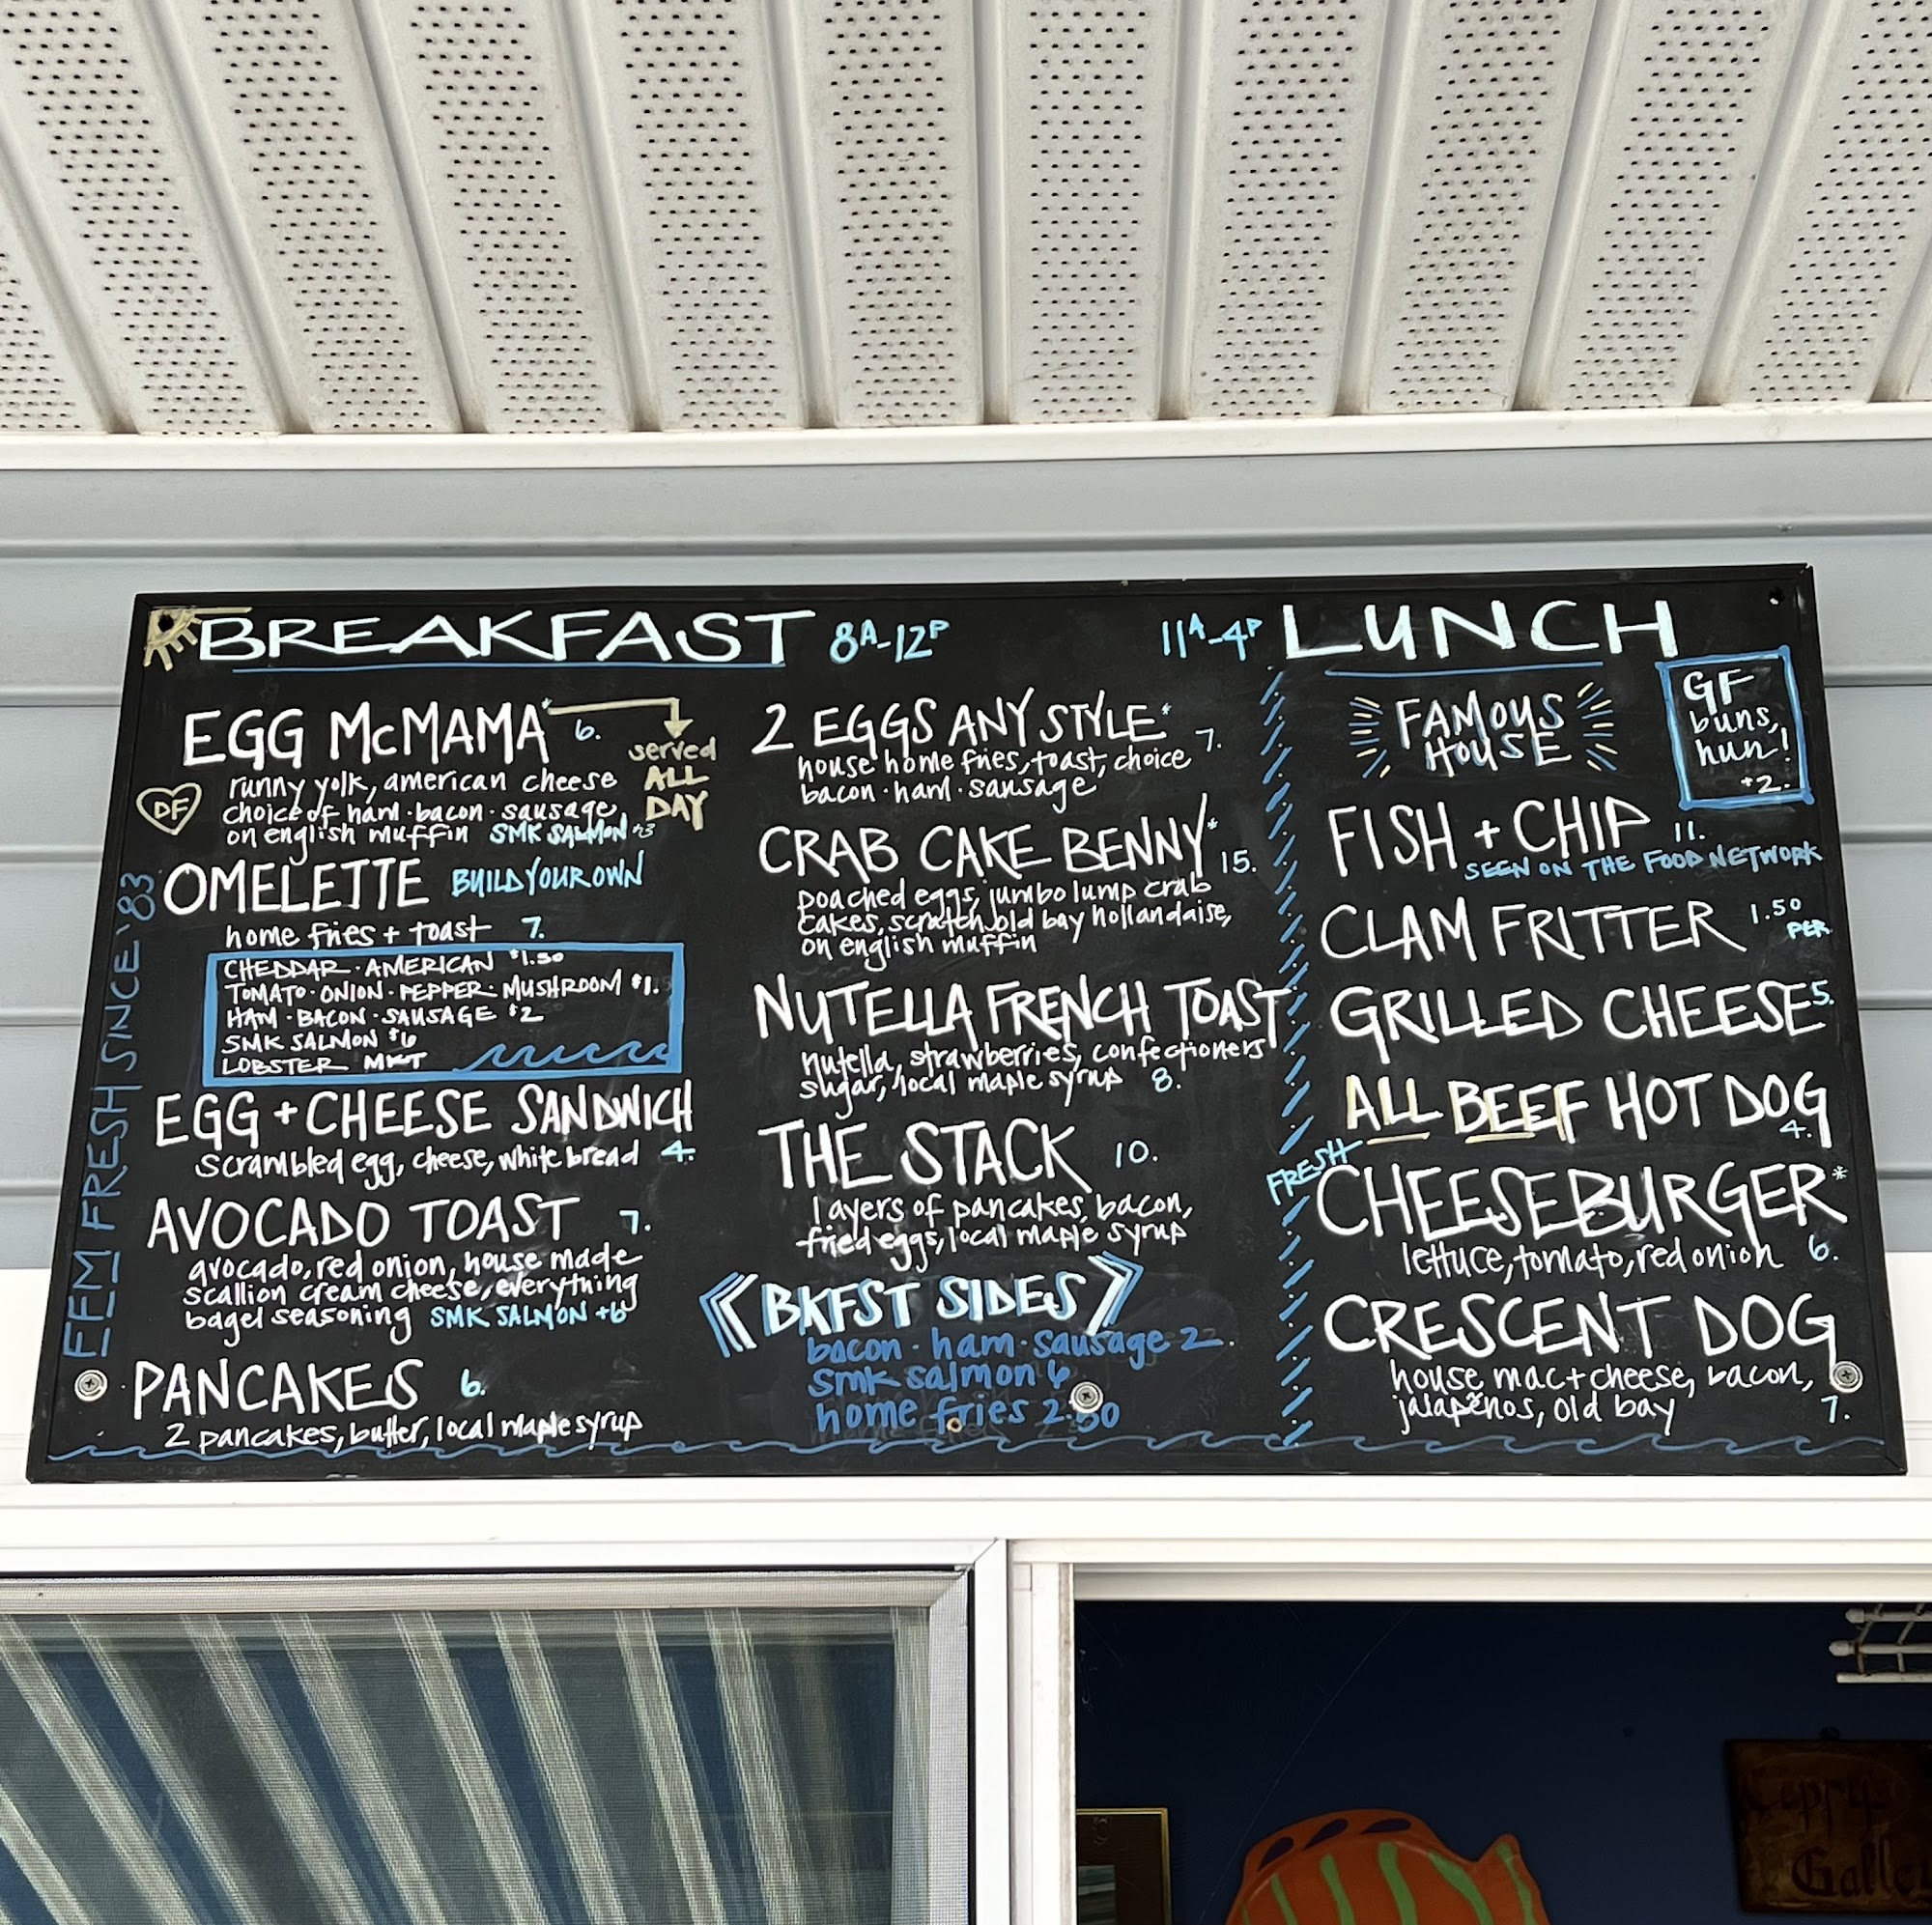 BREAKFAST 8A-12P
EGG McMAMA* 6.
served
ALL
DAY
DF
runny yolk, american cheese
choice of ham · bacon · sausage
on english muffin SMK SALMON +3
OMELETTE BUILD YOUR OWN
home fries + toast 7.
CHEDDAR · AMERICAN $1.50
TOMATO · ONION · PEPPER · MUSHROOM $1.
HAM · BACON · SAUSAGE $2
SMK SALMON $6
LOBSTER MKT
EGG + CHEESE SANDWICH
scrambled egg, cheese, white bread 4.
AVOCADO TOAST 7.
avocado, red onion, house made
scallion cream cheese, everything
bagel seasoning SMK SALMON +6
PANCAKES 6.
2 pancakes, butter, local maple syrup
FRESH SINCE '83
2 EGGS ANY STYLE* 7.
house home fries, toast, choice
bacon · ham · sausage
CRAB CAKE BENNY* 15.
poached eggs, jumbo lump crab
cakes, scratch old bay hollandaise,
on english muffin
NUTELLA FRENCH TOAST
nutella, strawberries, confectioners
sugar, local maple syrup 8.
THE STACK 10.
layers of pancakes, bacon,
fried eggs, local maple syrup
BKFST SIDES
bacon · ham · sausage 2.
smk salmon 6
home fries 2.50
11A-4P LUNCH
FAMOUS
HOUSE
GF
buns,
hun!
+2.
FISH + CHIP 11.
SEEN ON THE FOOD NETWORK
CLAM FRITTER 1.50
PER.
GRILLED CHEESE 5.
ALL BEEF HOT DOG
4.
FRESH
CHEESEBURGER*
lettuce, tomato, red onion 6.
CRESCENT DOG
house mac + cheese, bacon,
jalapeños, old bay 7.